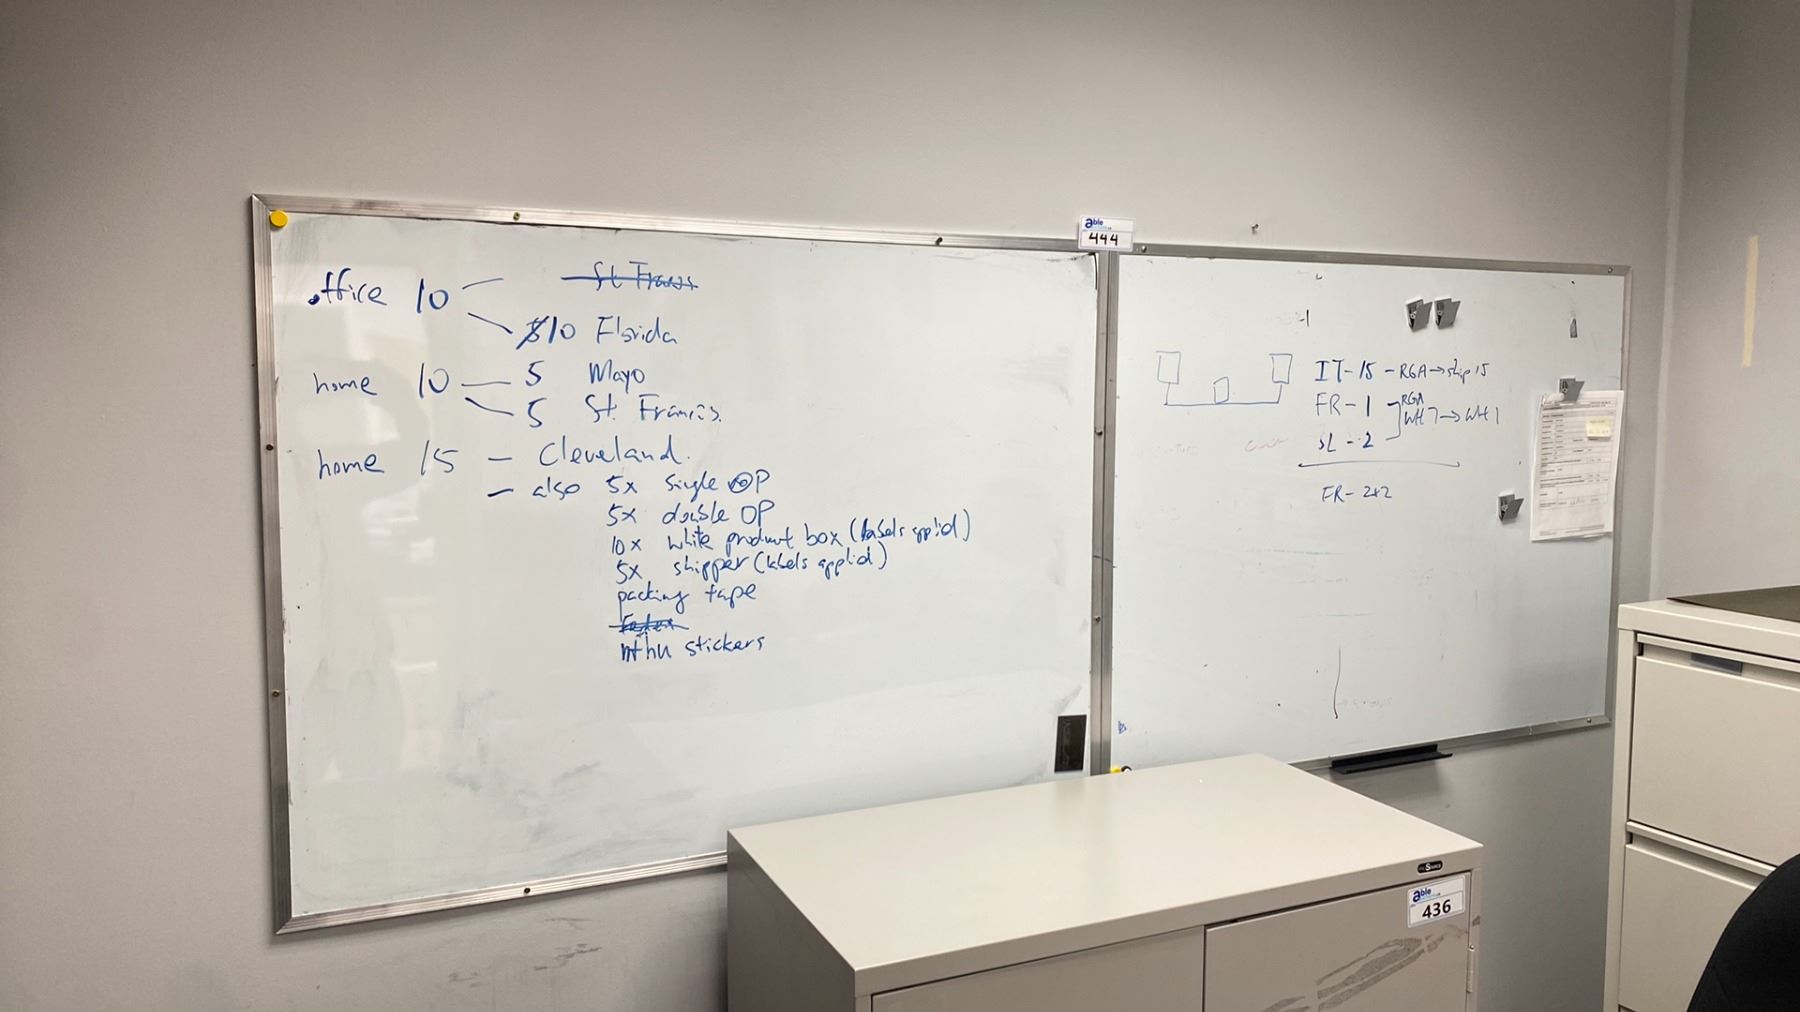 able
444
office 10
St Francis
10 Florida
home 10 — 5 Mayo
5 St. Francis.
home 15 — Cleveland.
— also 5x single OP
5x double OP
10x white product box (labels applid)
5x shipper (labels applid)
packing tape
stickers
IT-15 - RGA→ship 15
FR-1 RGA
WH7→WH1
SL-2
FR-2+2
able
436